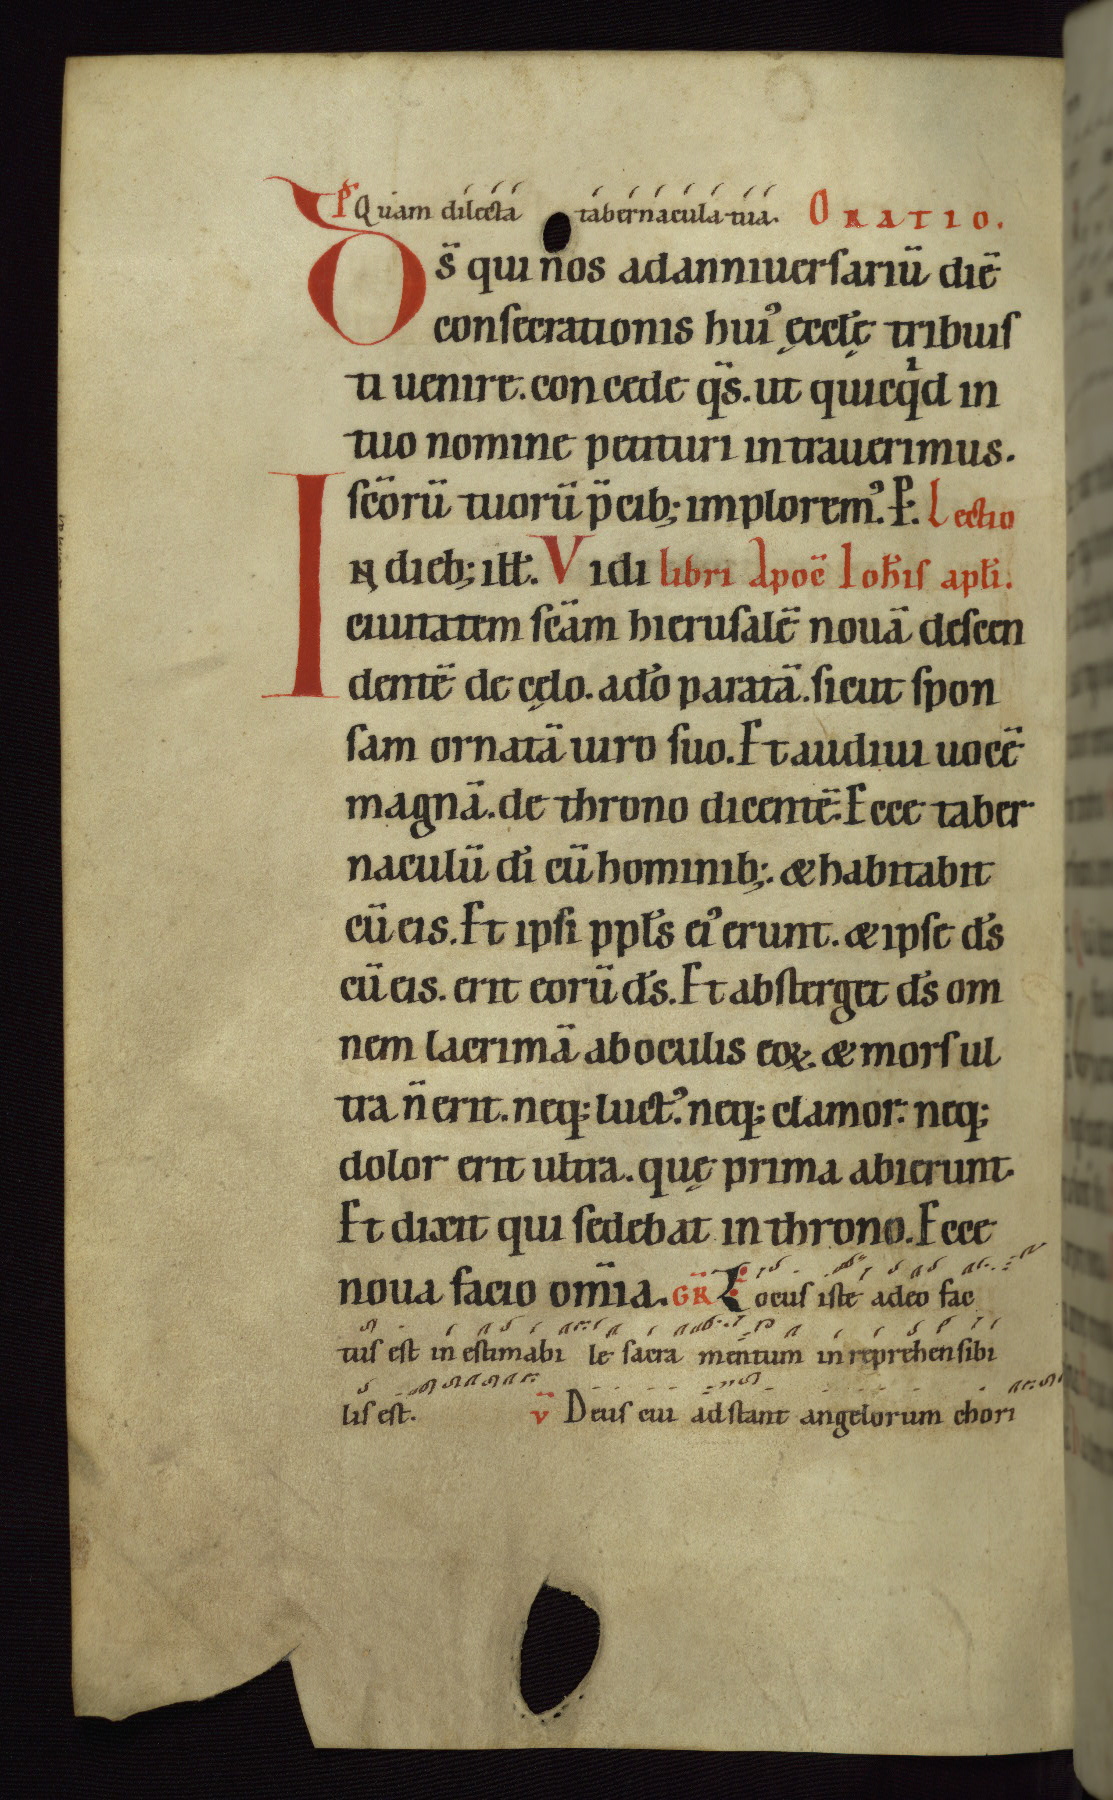 Pſ Quam dilecta tabernacula tua. ORATIO.
Ds̄ qui nos adanniuerſariū diē
conſecrationis hui᾽ ęccl̄ę tribuiſ
ti uenire. concede q̄s. ut quicq̇d in
tuo nomine petituri intrauerimus.
ſc̄orū tuorū p̄cib; implorem᾽. P. Lectio
In dieb; ill̄. Vidi libri Apoc̄ Ioh̄iſ apl̄i.
ciuitatem ſc̄am hieruſalē nouā deſcen
dentē de cęlo. a dō paratā. ſicut ſpon
ſam ornatā uiro ſuo. Et audiui uocē
magnā. de throno dicentē. Ecce taber
naculū dī cū hominib;. & habitabit
cū eis. Et ipſi ppl̄s ei᾽ erunt. & ipſe ds̄
cū eis. erit eorū ds̄. Et abſterget ds̄ om
nem lacrimā aboculis eoꝝ. & morſ ul
tra n̄ erit. neq; luct᾽. neq; clamor. neq;
dolor erit ultra. quę prima abierunt.
Et dixit qui ſedebat in throno. Ecce
noua facio om̄ia. GR̄ Locuſ iſte adeo fac
tuſ eſt in eſtimabi le ſacra mentum inreprehenſibi
liſ eſt. v̄ Deuſ cui adſtant angelorum chori